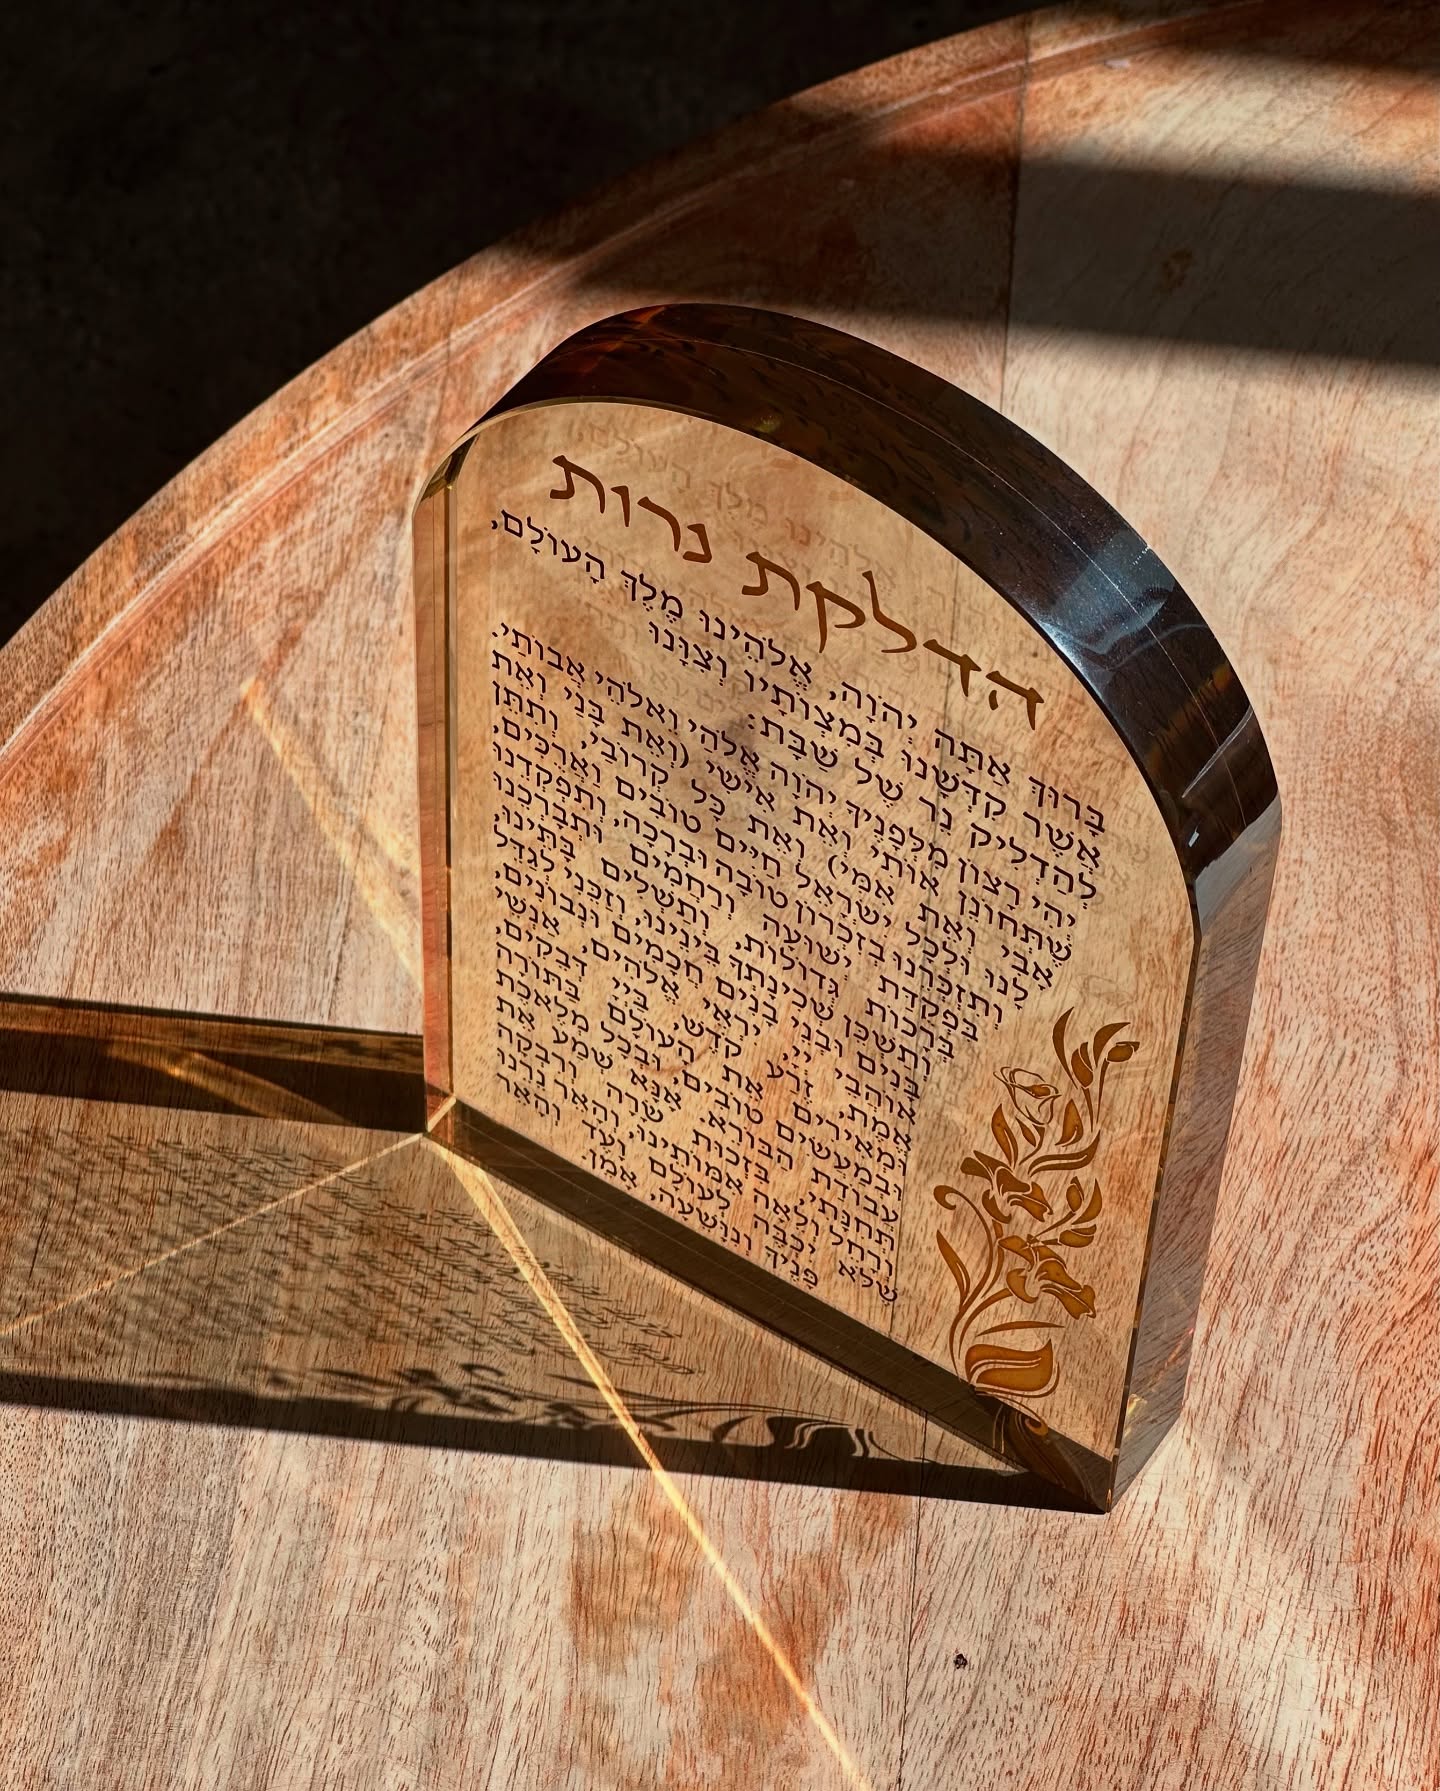 הדלקת נרות
בָּרוּךְ אַתָּה יְהוָה, אֱלֹהֵינוּ מֶלֶךְ הָעוֹלָם,
אֲשֶׁר קִדְּשָׁנוּ בְּמִצְוֹתָיו וְצִוָּנוּ
לְהַדְלִיק נֵר שֶׁל שַׁבָּת:
יְהִי רָצוֹן מִלְּפָנֶיךָ יְהוָה אֱלֹהַי וֵאלֹהֵי אֲבוֹתַי,
שֶׁתְּחוֹנֵן אוֹתִי וְאֶת אִישִׁי (וְאֶת בָּנַי וְאֶת
אָבִי וְאֶת אִמִּי) וְאֶת כָּל קְרוֹבַי, וְתִתֵּן
לָנוּ וּלְכָל יִשְׂרָאֵל חַיִּים טוֹבִים וַאֲרֻכִּים,
וְתִזְכְּרֵנוּ בְּזִכְרוֹן טוֹבָה וּבְרָכָה, וְתִפְקְדֵנוּ
בִּפְקֻדַּת יְשׁוּעָה וְרַחֲמִים, וּתְבָרְכֵנוּ
בְּרָכוֹת גְּדוֹלוֹת, וְתַשְׁלִים בָּתֵּינוּ,
וְתַשְׁכֵּן שְׁכִינָתְךָ בֵּינֵינוּ, וְזַכֵּנִי לְגַדֵּל
בָּנִים וּבְנֵי בָנִים חֲכָמִים וּנְבוֹנִים,
אוֹהֲבֵי יְיָ, יִרְאֵי אֱלֹהִים, אַנְשֵׁי
אֱמֶת, זֶרַע קֹדֶשׁ, בַּיְיָ דְּבֵקִים,
וּמְאִירִים אֶת הָעוֹלָם בַּתּוֹרָה
וּבְמַעֲשִׂים טוֹבִים, וּבְכָל מְלֶאכֶת
עֲבוֹדַת הַבּוֹרֵא. אָנָּא שְׁמַע אֶת
תְּחִנָּתִי, בִּזְכוּת שָׂרָה וְרִבְקָה
וְרָחֵל וְלֵאָה אִמּוֹתֵינוּ, וְהָאֵר נֵרֵנוּ
שֶׁלֹּא יִכְבֶּה לְעוֹלָם וָעֶד, וְהָאֵר
פָּנֶיךָ וְנִוָּשֵׁעָה, אָמֵן.